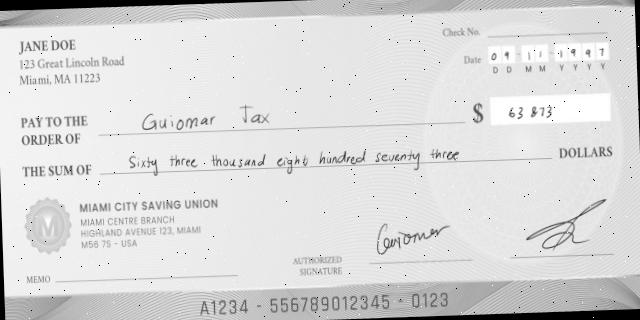 Check No.
JANE DOE
123 Great Lincoln Road
Miami, MA 11223
Date 09 11 1997
D D M M Y Y Y Y
PAY TO THE
ORDER OF Guiomar Tax $ 63 873
THE SUM OF Sixty three thousand eight hundred seventy three DOLLARS
MIAMI CITY SAVING UNION
MIAMI CENTRE BRANCH
HIGHLAND AVENUE 123, MIAMI
M56 7S - USA
M
Guiomar
AUTHORIZED
SIGNATURE
MEMO
A1234 - 556789012345 - 0123